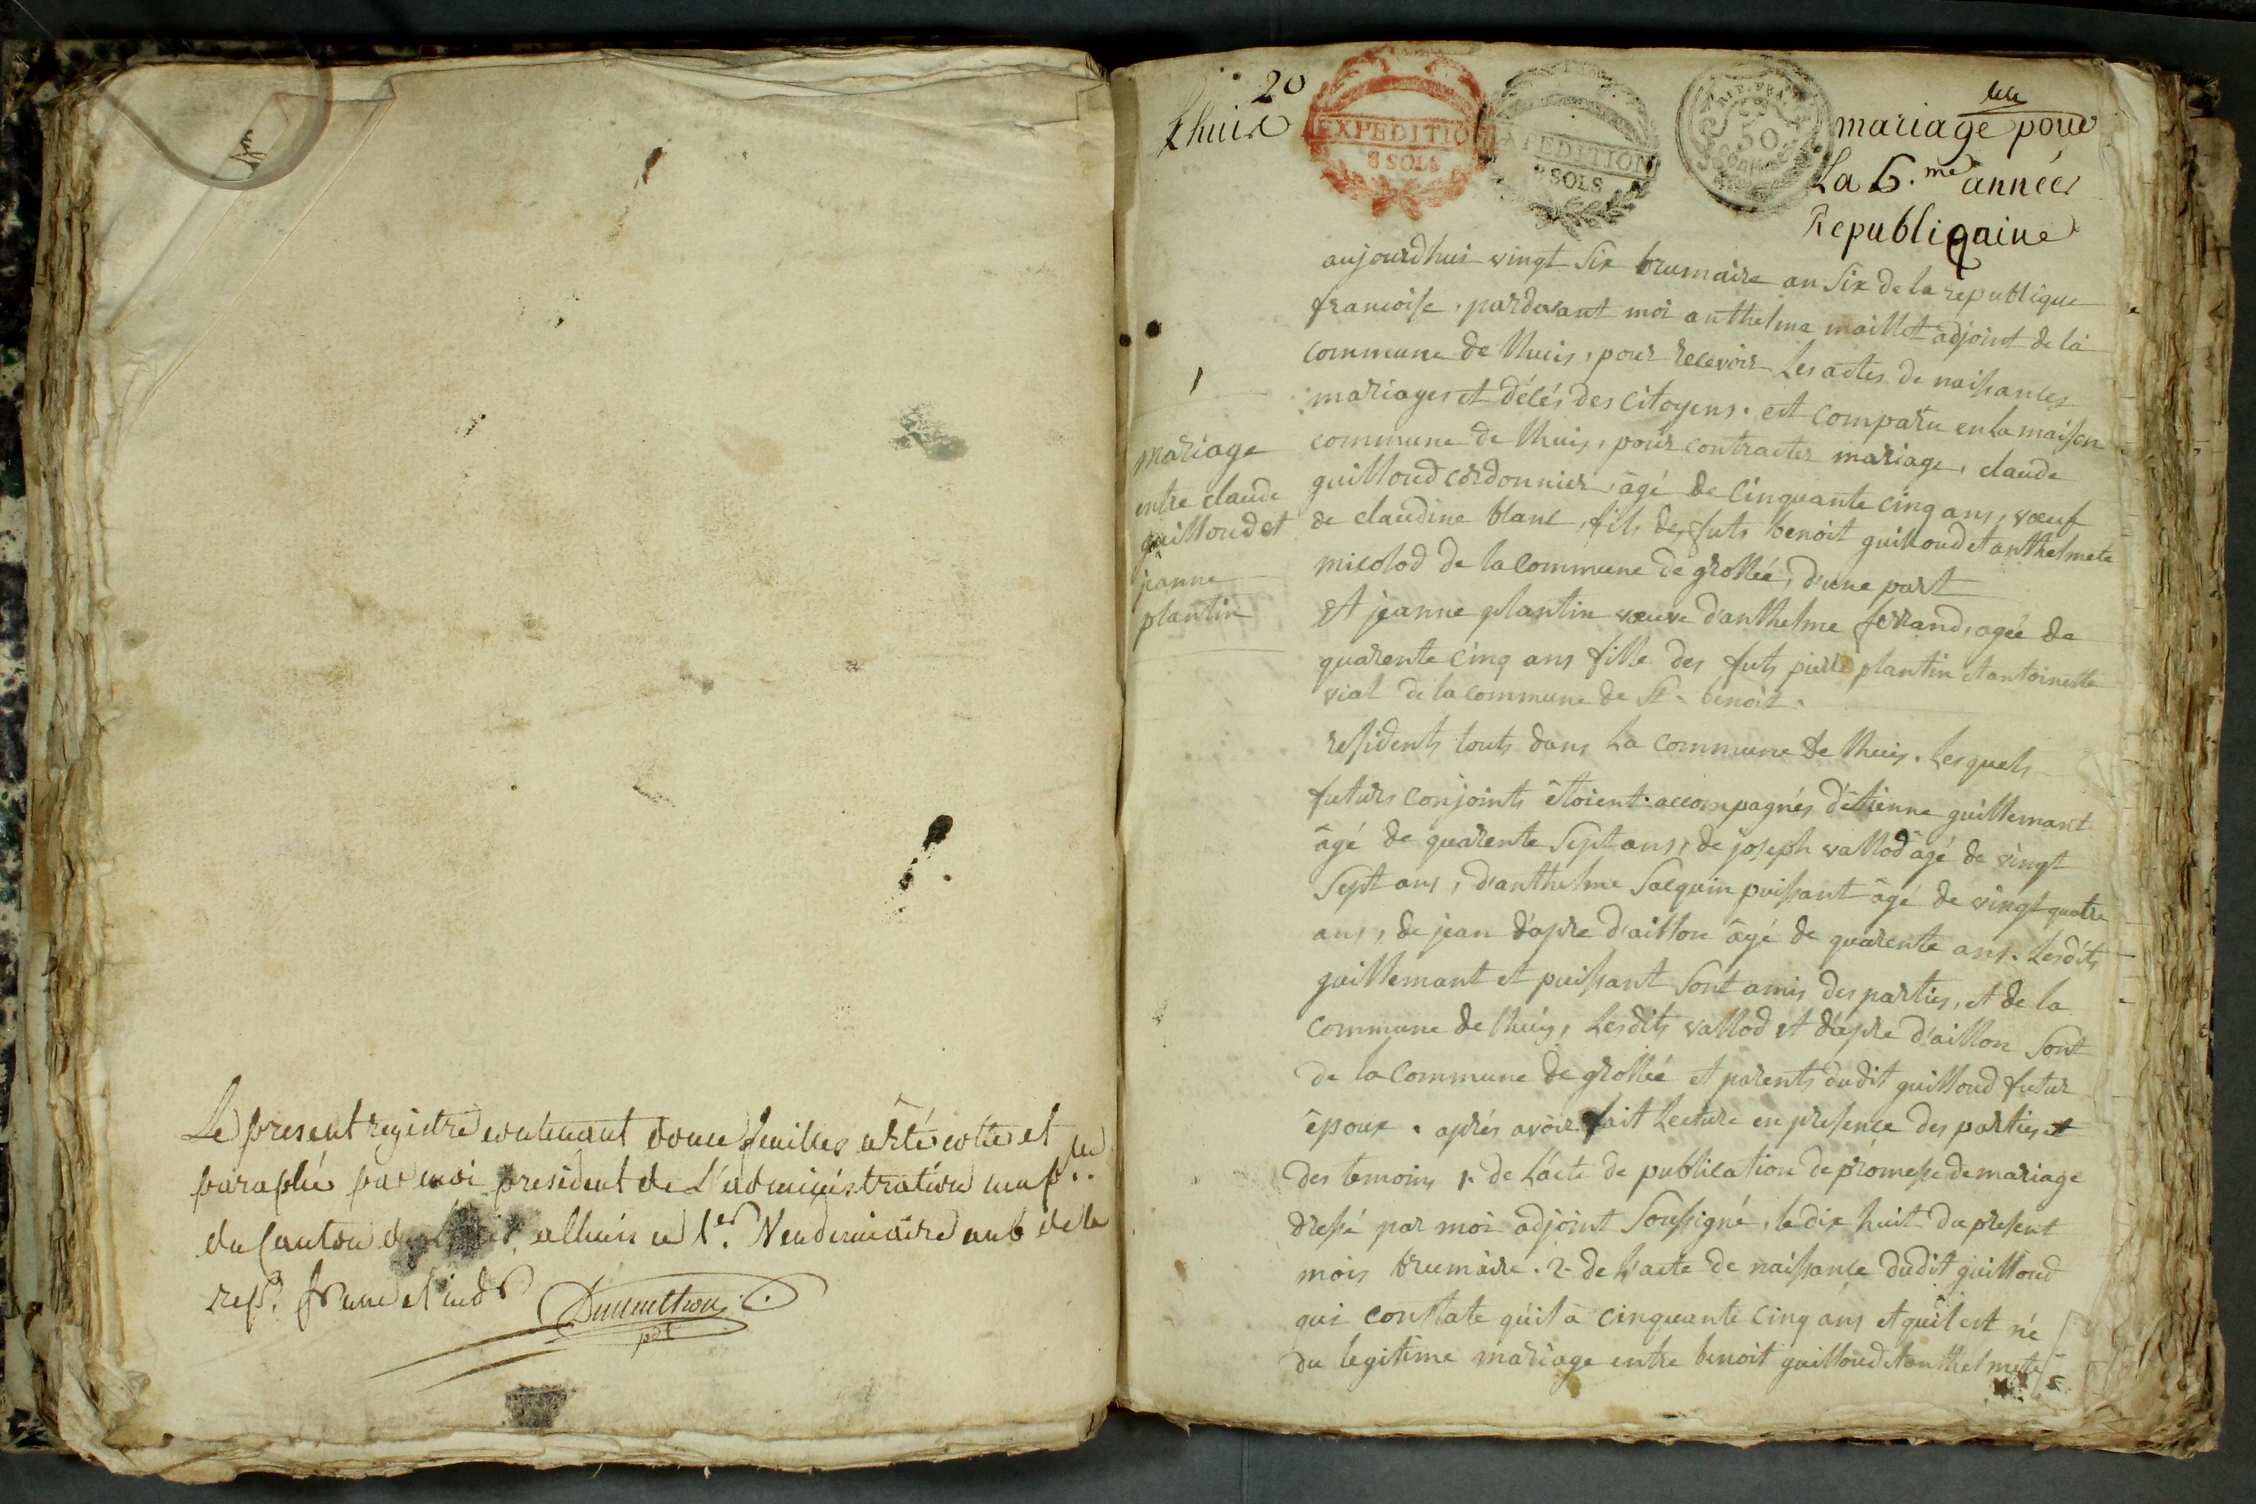 Le present registre contenant douze feuilles a été cotté et
paraphé par moi president de L'administration mup.lle
du canton de lhuis, a lhuis ce 1.er Vendemiaire an 6 de la
rep. f une et ind
Dumulthou
pdt
20
Lhuis
EXPEDITION
8 SOLS
EXPEDITION
SOLS
REP. FRA
50
mariage pour
La 6.me année
Republiqaine
aujourdhui vingt six brumaire an six de la republique
francoise. pardevant moi anthelme maillet adjoint de la
commune de lhuis, pour recevoir Les actes de naissances
mariages et décés des citoyens. est comparu en la maison
commune de lhuis, pour contracter mariage, claude
guilloud cordonnier, âgé de cinquante cinq ans, vœuf
de claudine blanc, fils des futs benoit guilloud et anthelmete
micolod de la commune de grollée, d'une part
Et jeanne plantin vœuve d'anthelme ferrand, agée de
quarente cinq ans fille des futs pierre plantin et antoinette
vial de la commune de St. benoit.
residents touts dans La commune de lhuis. Lesquels
futurs conjoints étoient accompagnés d'étienne guillemant
âgé de quarente sept ans, de joseph vallod âgé de vingt
sept ans, d'anthelme Salquin puissant âgé de vingt quatre
ans, de jean d'apre d'aillon âgé de quarente ans. Lesdits
guillemant et puissant sont amis des parties, et de la
commune de lhuis, Lesdits vallod et d'apre d'aillon sont
de la commune de grollée et parents dudit guilloud futur
époux. aprés avoir fait Lecture en presence des parties et
des temoins 1. de L'acte de publication de promesse de mariage
dressé par moi adjoint soussigné, le dix huit du present
mois brumaire. 2. de L'acte de naissance dudit guilloud
qui constate qu'il a cinquante cinq ans et qu'il est né
du legitime mariage entre benoit guilloud et anthelmete
1
mariage
entre claude
guilloud et
jeanne
plantin